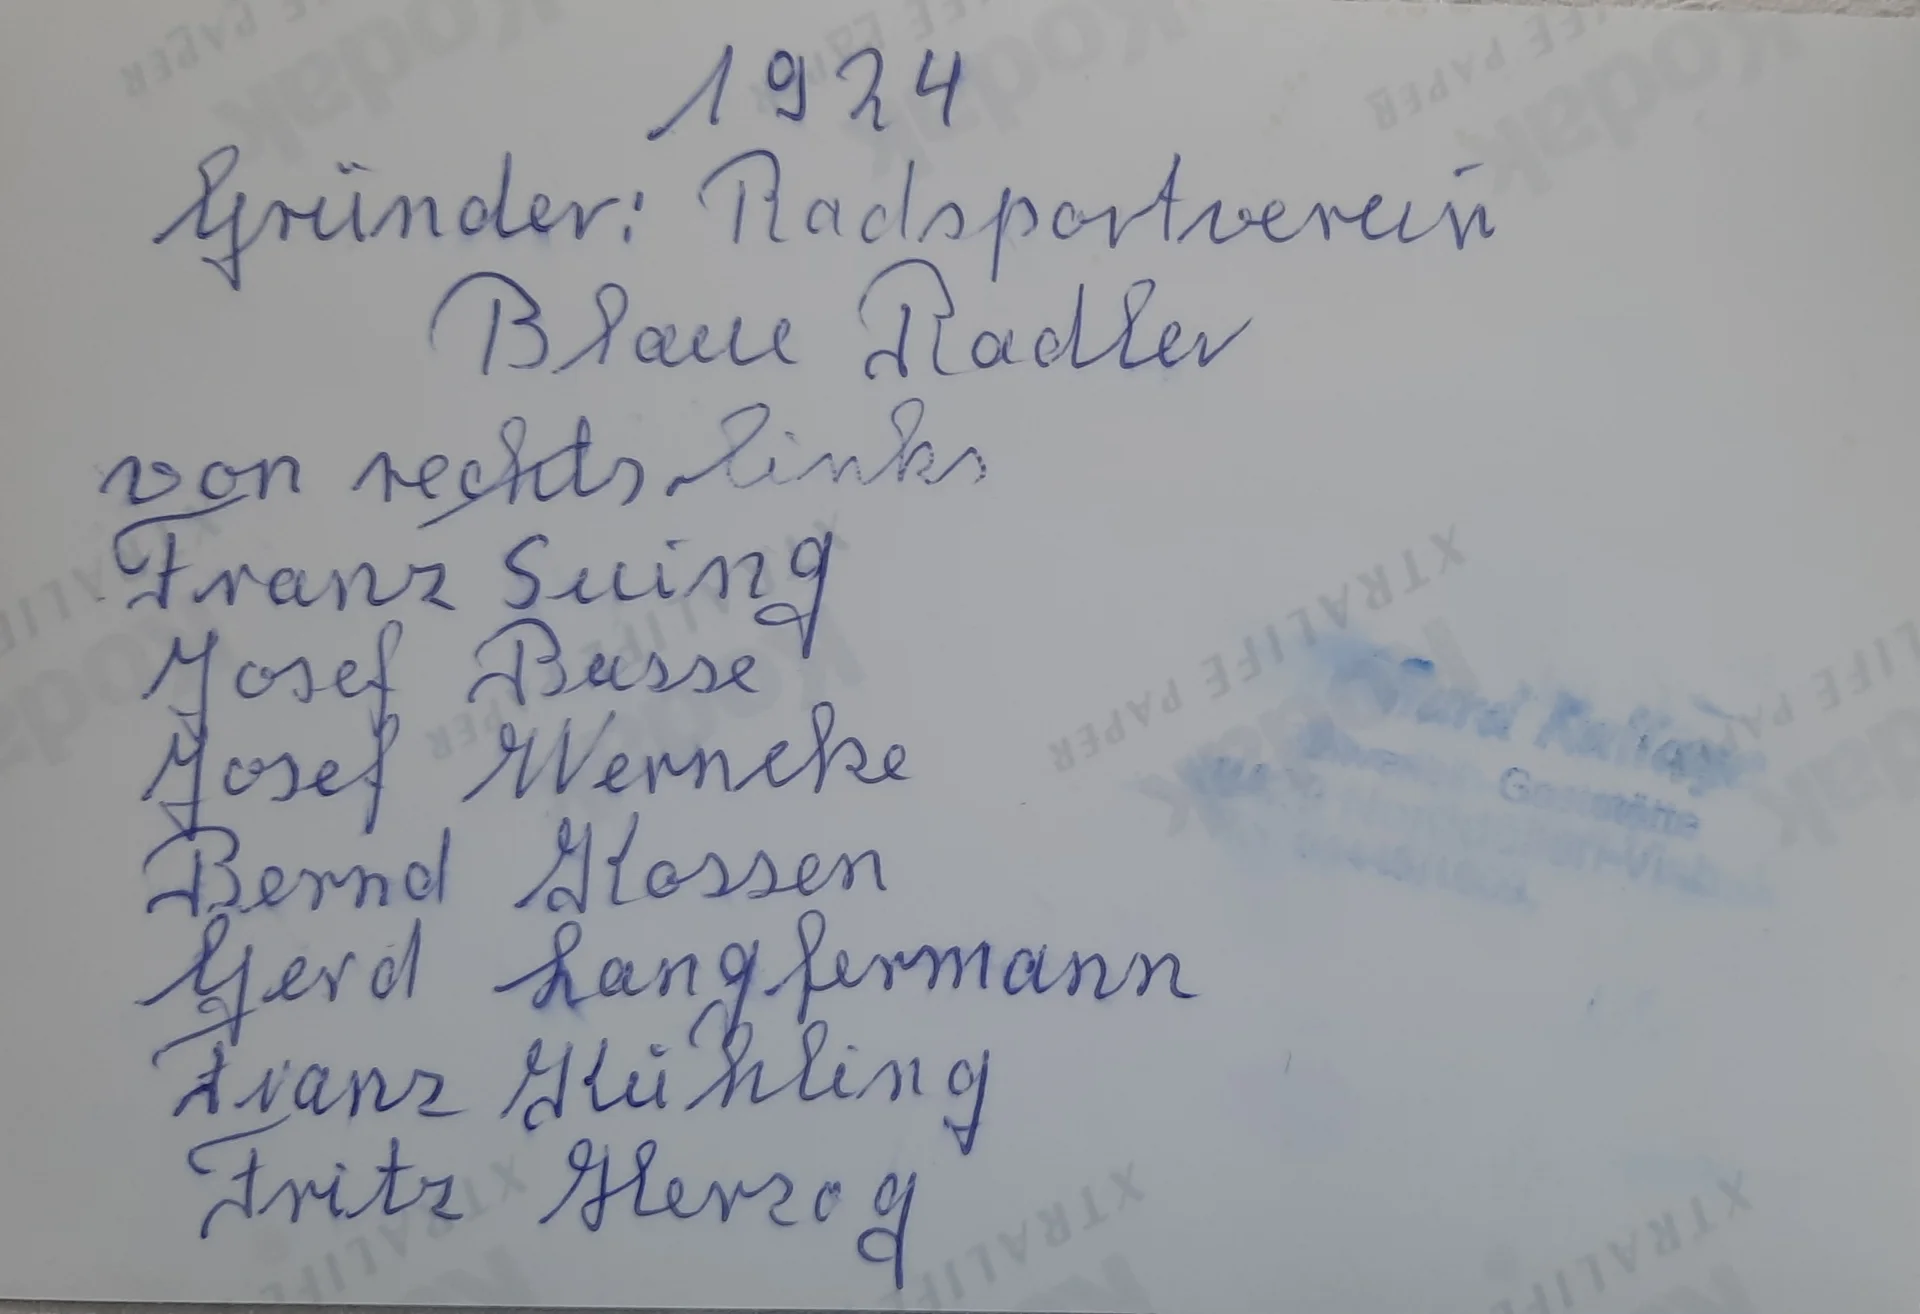 1924
Gründer: Radsportverein
Blaue Radler
von rechts links
Franz Suing
Josef Busse
Josef Werneke
Bernd Klossen
Gerd Langfermann
Franz Kühling
Fritz Herzog
Kodak
XTRALIFE PAPER